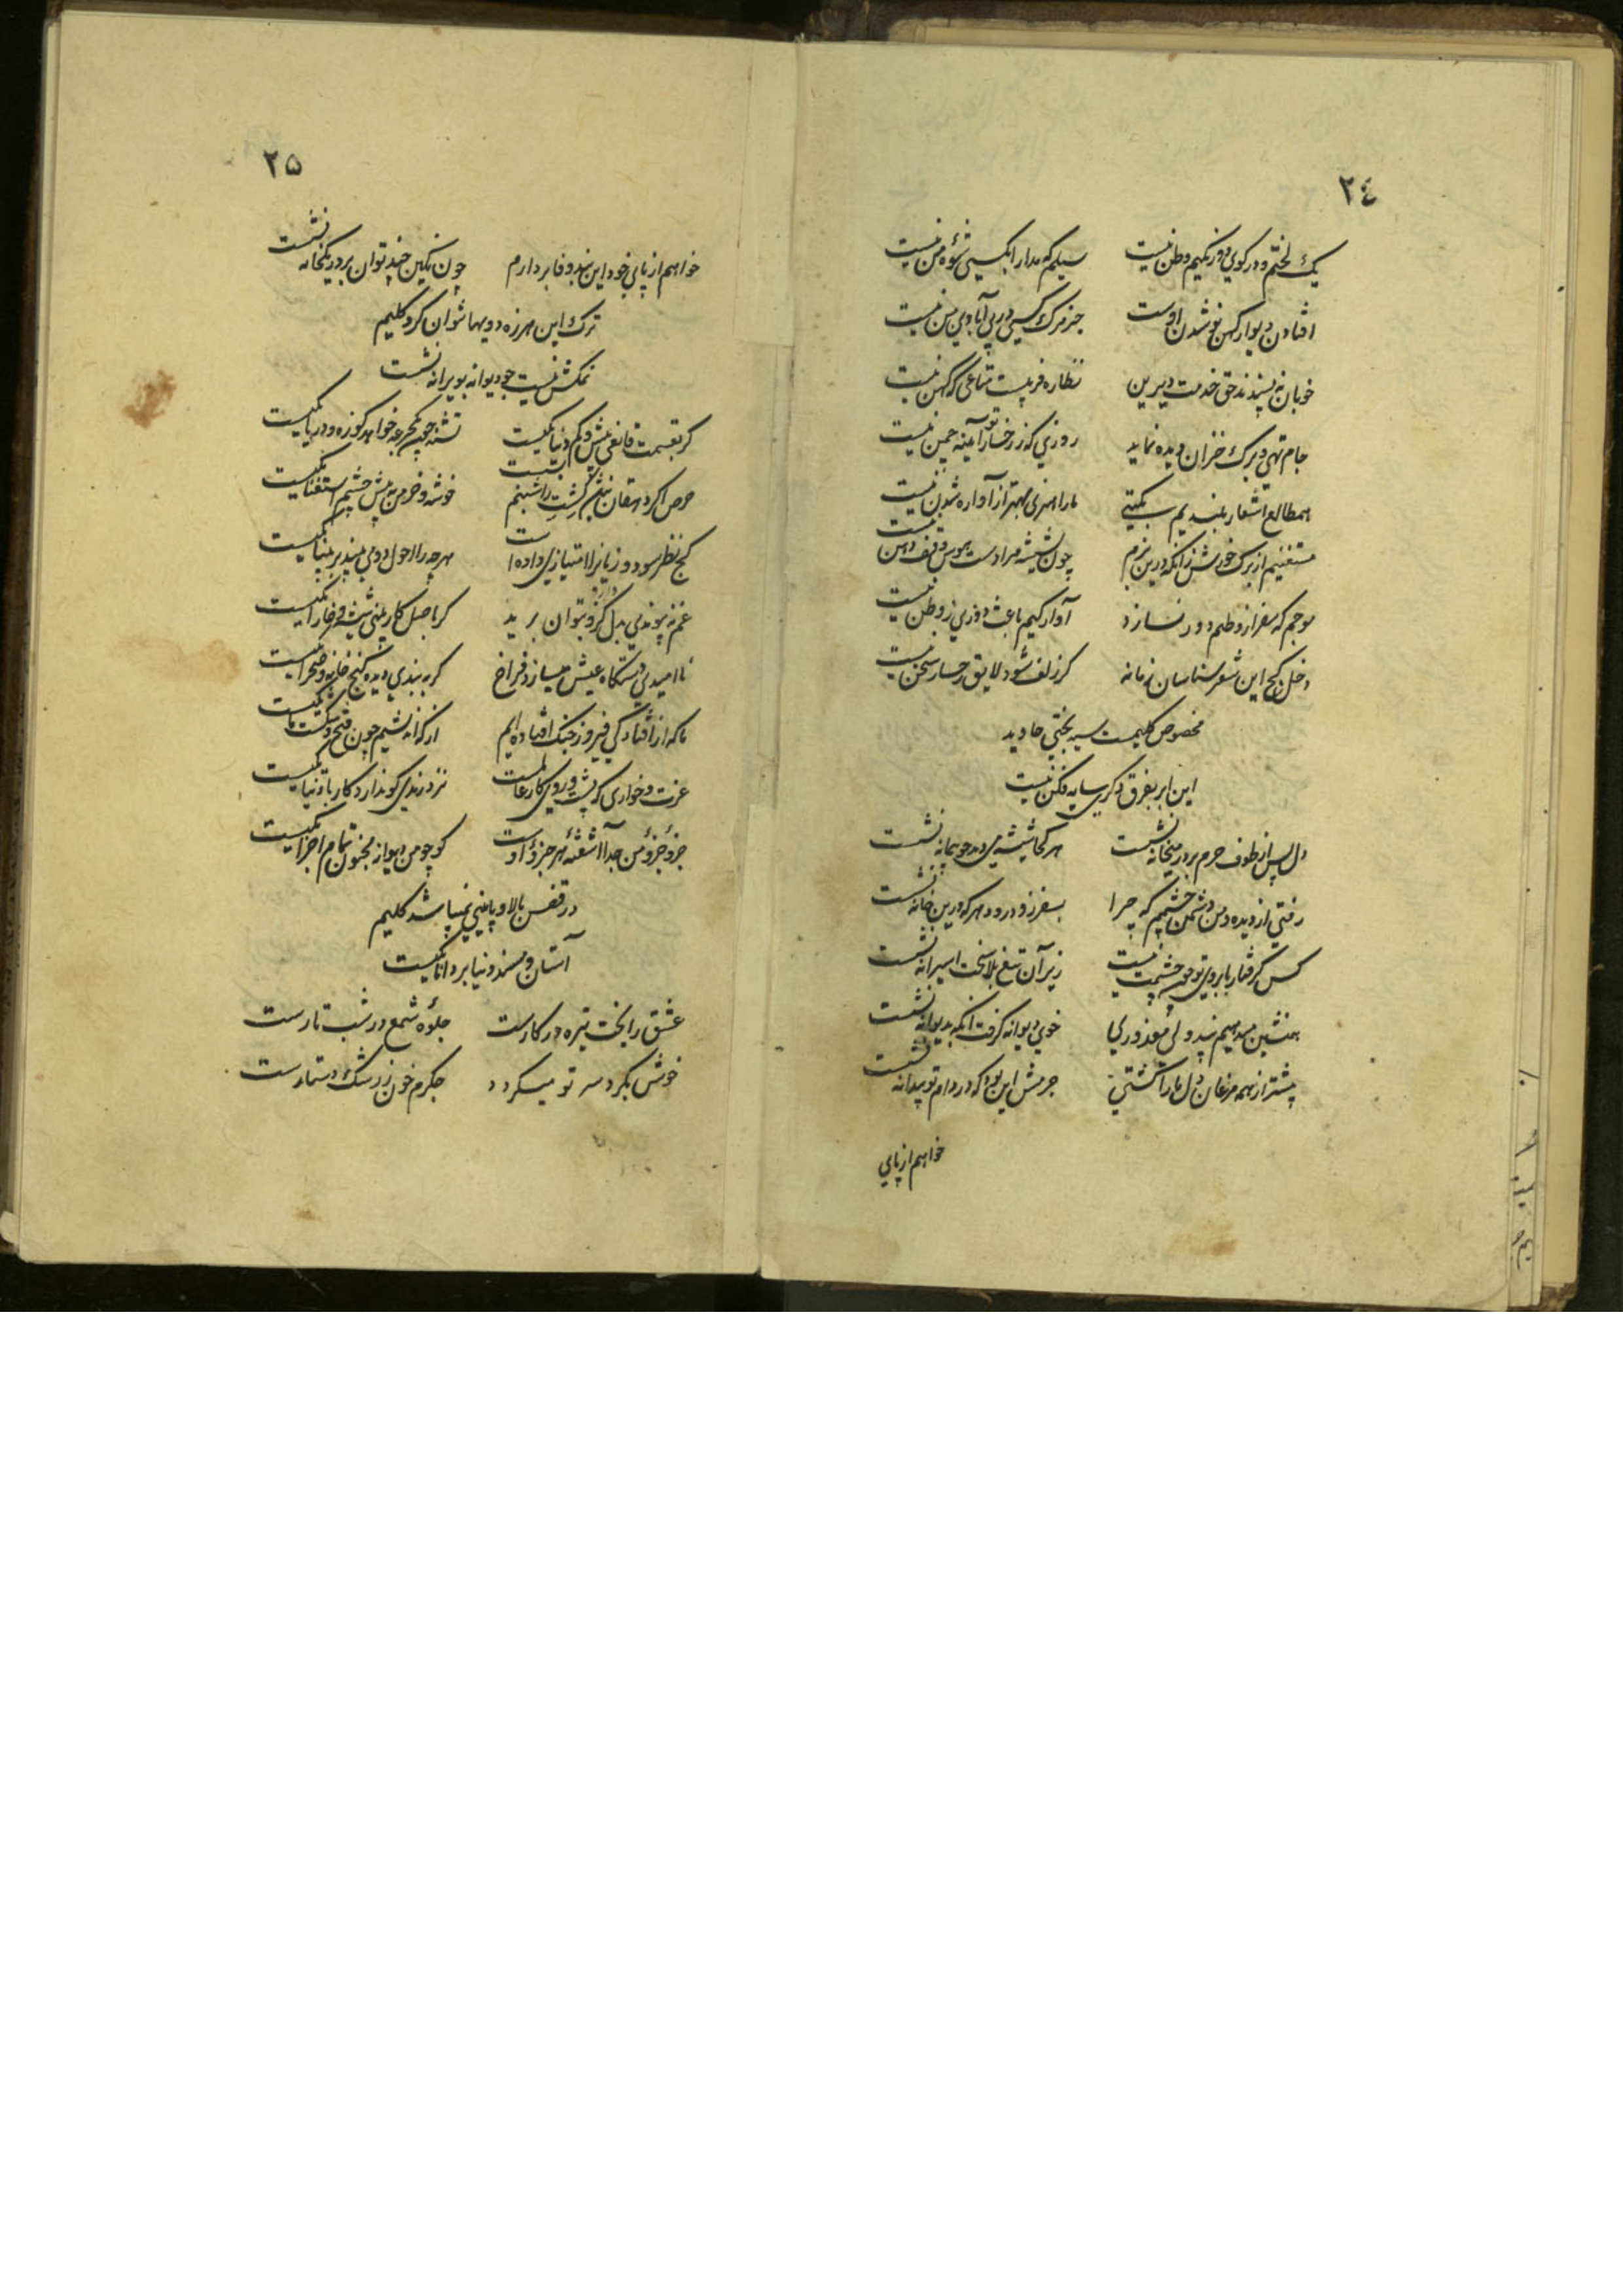 ٢٤
یک لختم و در کوی دو رنگیم وطن نیست
سیلم که مدارا بکسی شیوه من نیست
افتادن دیوار کهن نو شدن اوست
جز مرگ کسی در پی آبادی من نیست
خوبان نه پسندند حق خدمت دیرین
نظاره فریبست متاعی که کهن نیست
جام تهی و برک خزان دیده نماید
روزی که ز رخسار تو آیینه چمن نیست
هم طالع اشعار بلندیم به کیتی
ما را هنری بهتر از آواره شدن نیست
مستغنیم از برک خورش زانکه درین بزم
چون شیشه مرا دست هوس وقف دهن نیست
موجم که سفر از وطنم دور نسازد
آوارکیم باعث دوری ز وطن نیست
دخل کج این شعر شناسان زمانه
کر زلف شود لایق رخسار سخن نیست
مخصوص کلیمست سیه بختی جاوید
این ابر بفرق دکری سایه فکن نیست
دل پس از طوف حرم بر در میخانه نشست
هر کجا شیشه می دید چو پیمانه نشست
رفتی از دیده و من دشمن چشمم که چرا
بسفر زود رود هر که درین خانه نشست
کس کرفتار بابروی تو چون چشمت نیست
زیر آن تیغ بلا سخت اسیرانه نشست
همنشین میدهیم پند ولی معذوری
خوی دیوانه کرفت آنکه بدیوانه نشست
پیشتر از همه مرغان دل ما را کشتی
جرمش این بود که در دام تو بیدانه نشست
خواهم از پای
٢۵
خواهم از پای خود این بند وفا بردارم
چون نکین چند توان بر در یکخانه نشست
ترک این هرزه دویها نتوان کرد کلیم
نمکش نیست چو دیوانه بویرانه نشست
کر بقسمت قانعی بیش و کم دنیا یکیست
تشنه چون یکجرعه خواهد کوزه و دریا یکیست
حرص اکر دهقان نباشد کشت را شبنم بسست
خوشه و خرمن به پیش چشم استغنا یکیست
کج نظر سود و زیانرا امتیازی داده است
هر چه را احول دو می بیند بر بینا یکیست
غم نه پیوندی بدل کرد کزو بتوان برید
کر باصل کار بینی شیشه و خارا یکیست
نا امیدی دستکاه عیش میسازد فراخ
کر به بندی دیده کنج خانه و صحرا یکیست
ما که از افتادکی فیروز جنک افتاده ایم
از که اندیشیم چون فتح و شکست ما یکیست
عزت و خواری که پشت و روی کار عالمست
نزد رندی کو ندارد کار با دنیا یکیست
جزو جزو من جدا آشفته هر جزو اوست
کو چو من دیوانه مجنون تمام اجزا یکیست
در قفس بالا و پایینی نمیباشد کلیم
آستان و مسند دنیا بر دانا یکیست
عشق را بخت تیره در کارست
جلوه شمع در شب تارست
خونش بکرد سر تو میکردد
جکرم خون ز رشک دستارست